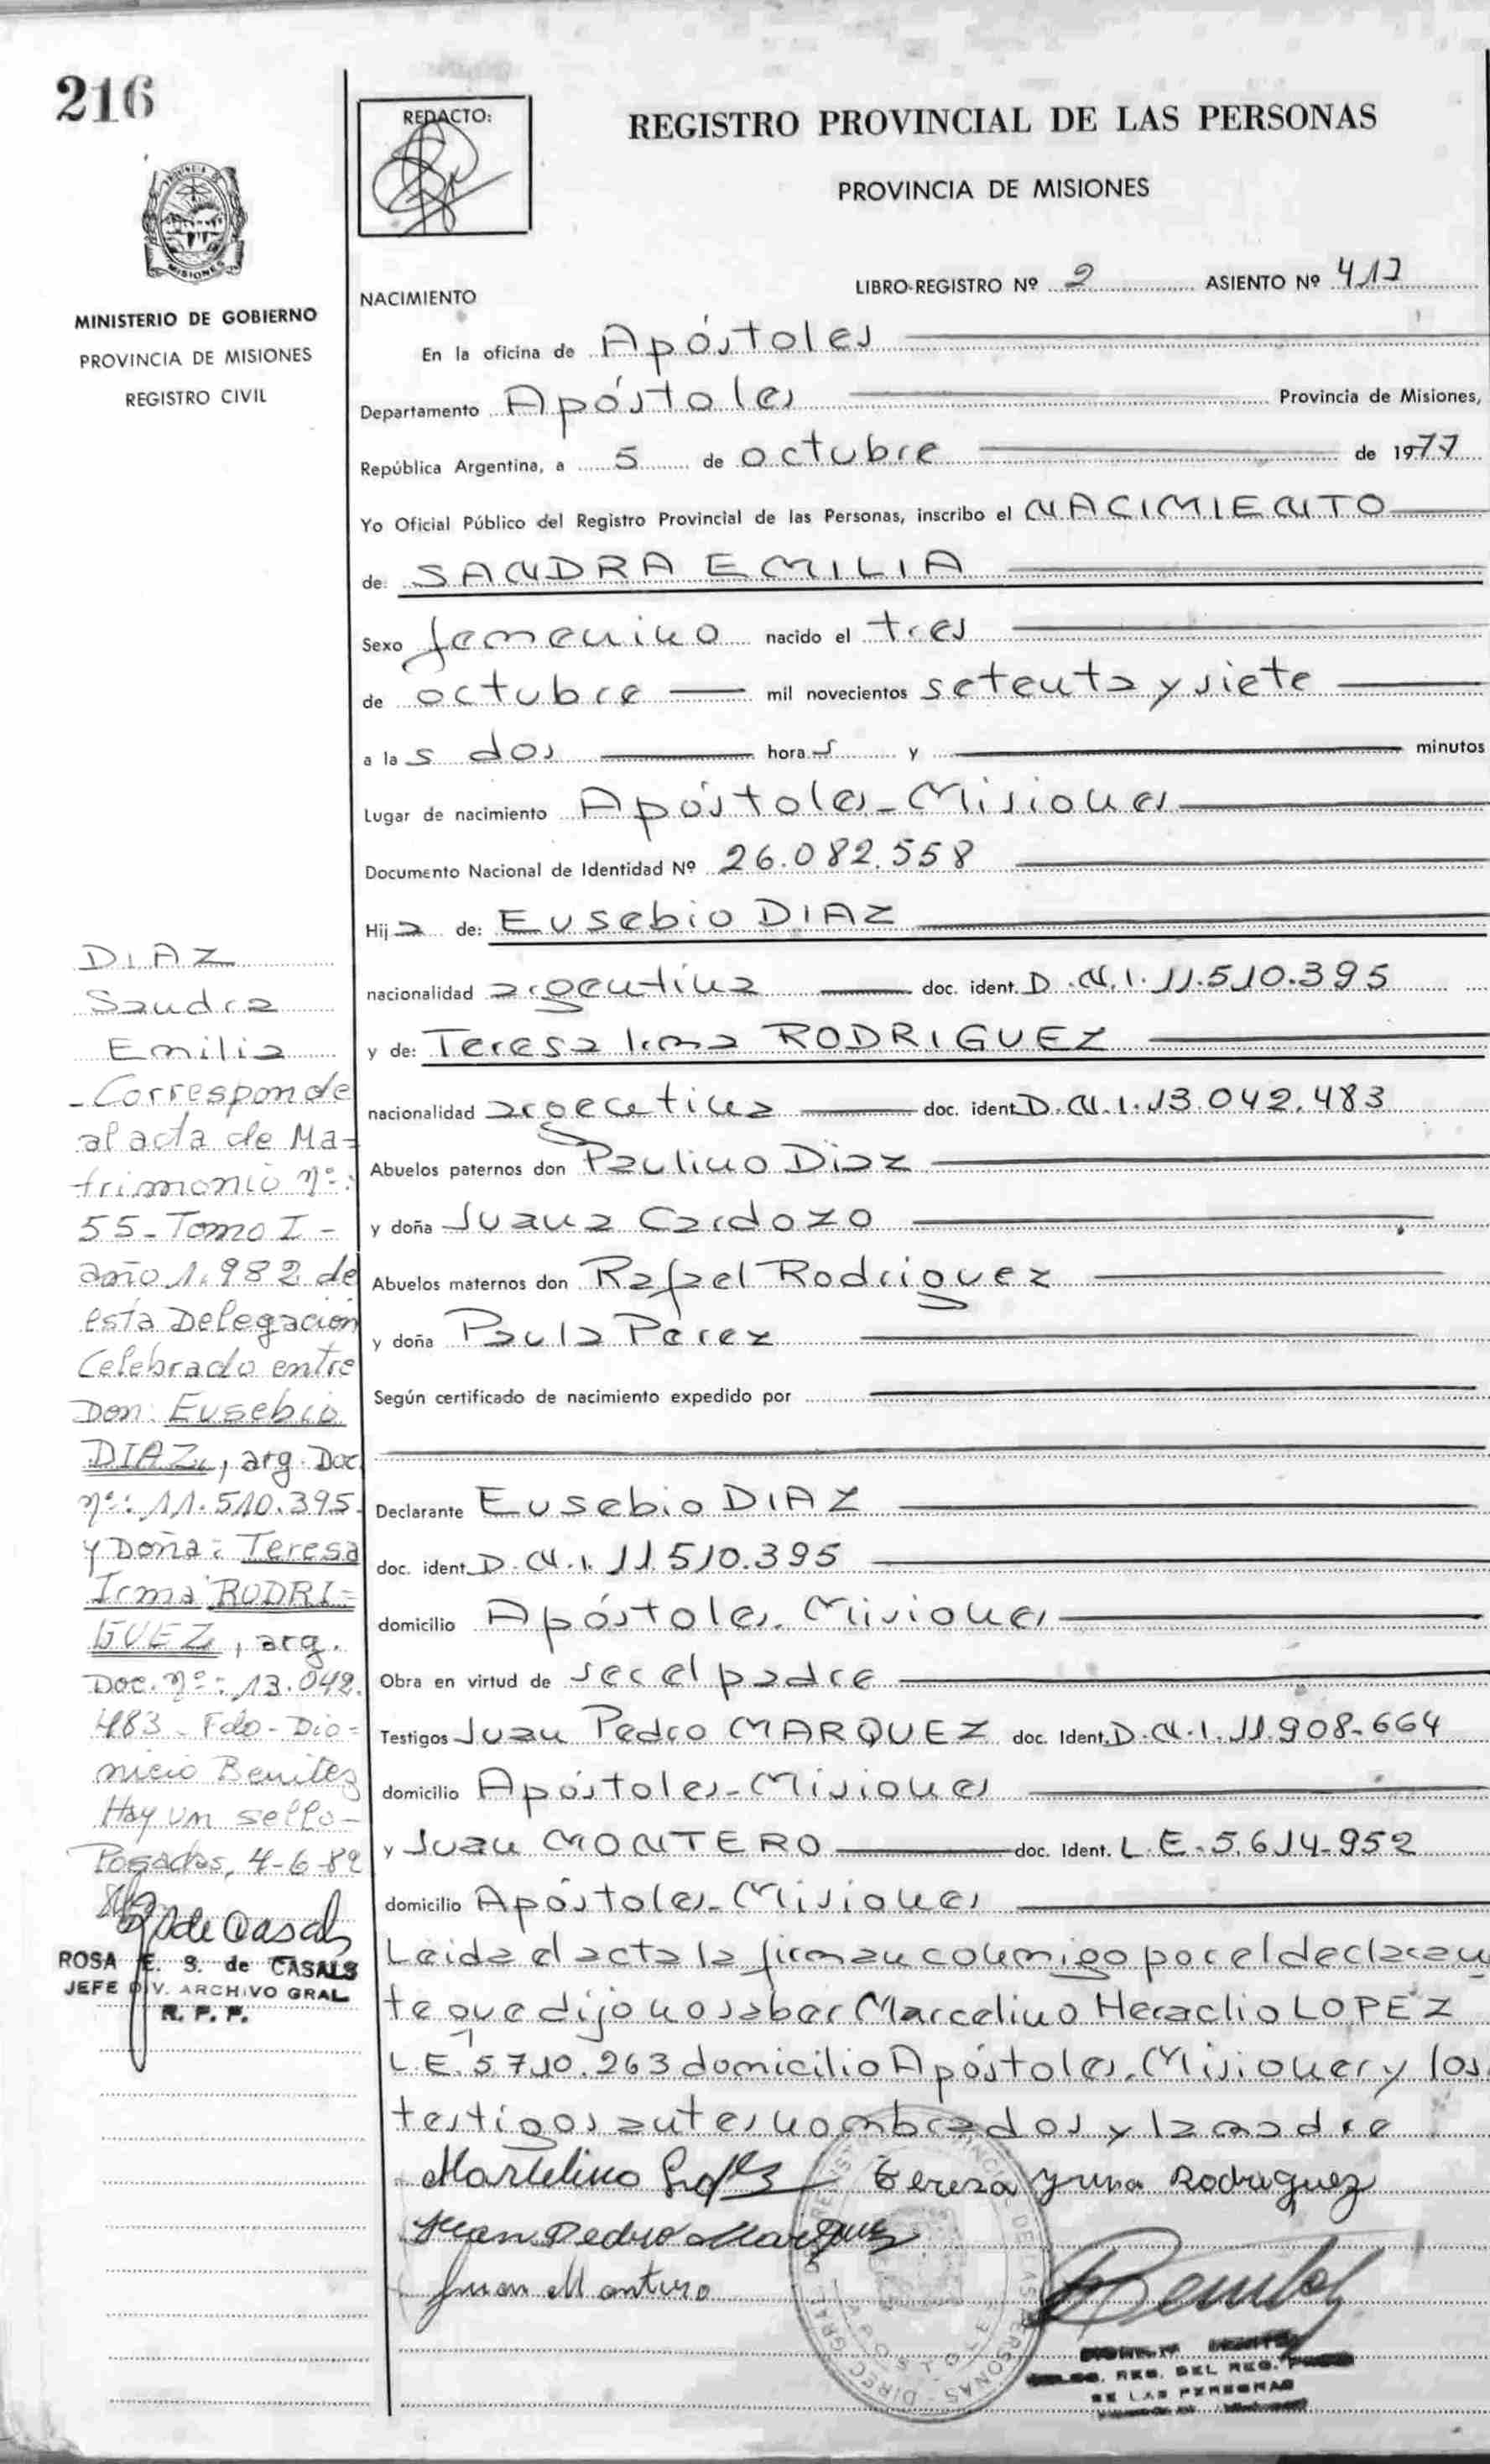 216
REDACTO:
REGISTRO PROVINCIAL DE LAS PERSONAS
PROVINCIA DE MISIONES
MISIONES
MINISTERIO DE GOBIERNO
PROVINCIA DE MISIONES
REGISTRO CIVIL
LIBRO-REGISTRO Nº 2 ASIENTO Nº 417
NACIMIENTO
En la oficina de Apóstoles
Departamento Apóstoles Provincia de Misiones,
República Argentina, a 5 de octubre de 1977
Yo Oficial Público del Registro Provincial de las Personas, inscribo el NACIMIENTO
de: SANDRA EMILIA
Sexo femenino nacido el tres
de octubre mil novecientos setenta y siete
a las dos horas y minutos
Lugar de nacimiento Apóstoles - Misiones
Documento Nacional de Identidad Nº 26.082.558
Hija de: Eusebio DIAZ
nacionalidad argentina doc. ident. D.N.I. 11.510.395
y de: Teresa Irma RODRIGUEZ
nacionalidad argentina doc. ident. D.N.I. 13.042.483
Abuelos paternos don Paulino Diaz
y doña Juana Cardozo
Abuelos maternos don Rafael Rodriguez
y doña Paula Perez
Según certificado de nacimiento expedido por
Declarante Eusebio DIAZ
doc. ident. D.N.I. 11.510.395
domicilio Apóstoles - Misiones
Obra en virtud de ser el padre
Testigos Juan Pedro MARQUEZ doc. Ident. D.N.I. 11.908-664
domicilio Apóstoles - Misiones
y Juan MONTERO doc. Ident. L.E. 5.614.952
domicilio Apóstoles - Misiones
Leida el acta la firman conmigo por el declaran
te que dijo no saber Marcelino Heraclio LOPEZ
L.E. 5.710.263 domicilio Apóstoles, Misiones y los
testigos antes nombrados y la madre
Marcelino Teresa Yrma Rodriguez
Juan Pedro Marquez
Juan Montero
DE LAS PERSONAS
APOSTOLES
REG. DEL REG.
DE LAS PERSONAS
DIAZ
Sandra
Emilia
- Corresponde
al acta de Ma=
trimonio nº:
55 - Tomo I -
año 1.982 de
esta Delegación
Celebrado entre
Don: Eusebio
DIAZ, arg. Doc
nº: 11.510.395.
y Doña: Teresa
Irma RODRI=
GUEZ, arg.
Doc. nº: 13.042.
483 - Fdo - Dio=
nicio Benitez
Hay un sello -
Posadas, 4-6-82
ROSA E. S. de CASALS
JEFE DIV. ARCHIVO GRAL
R. P. P.